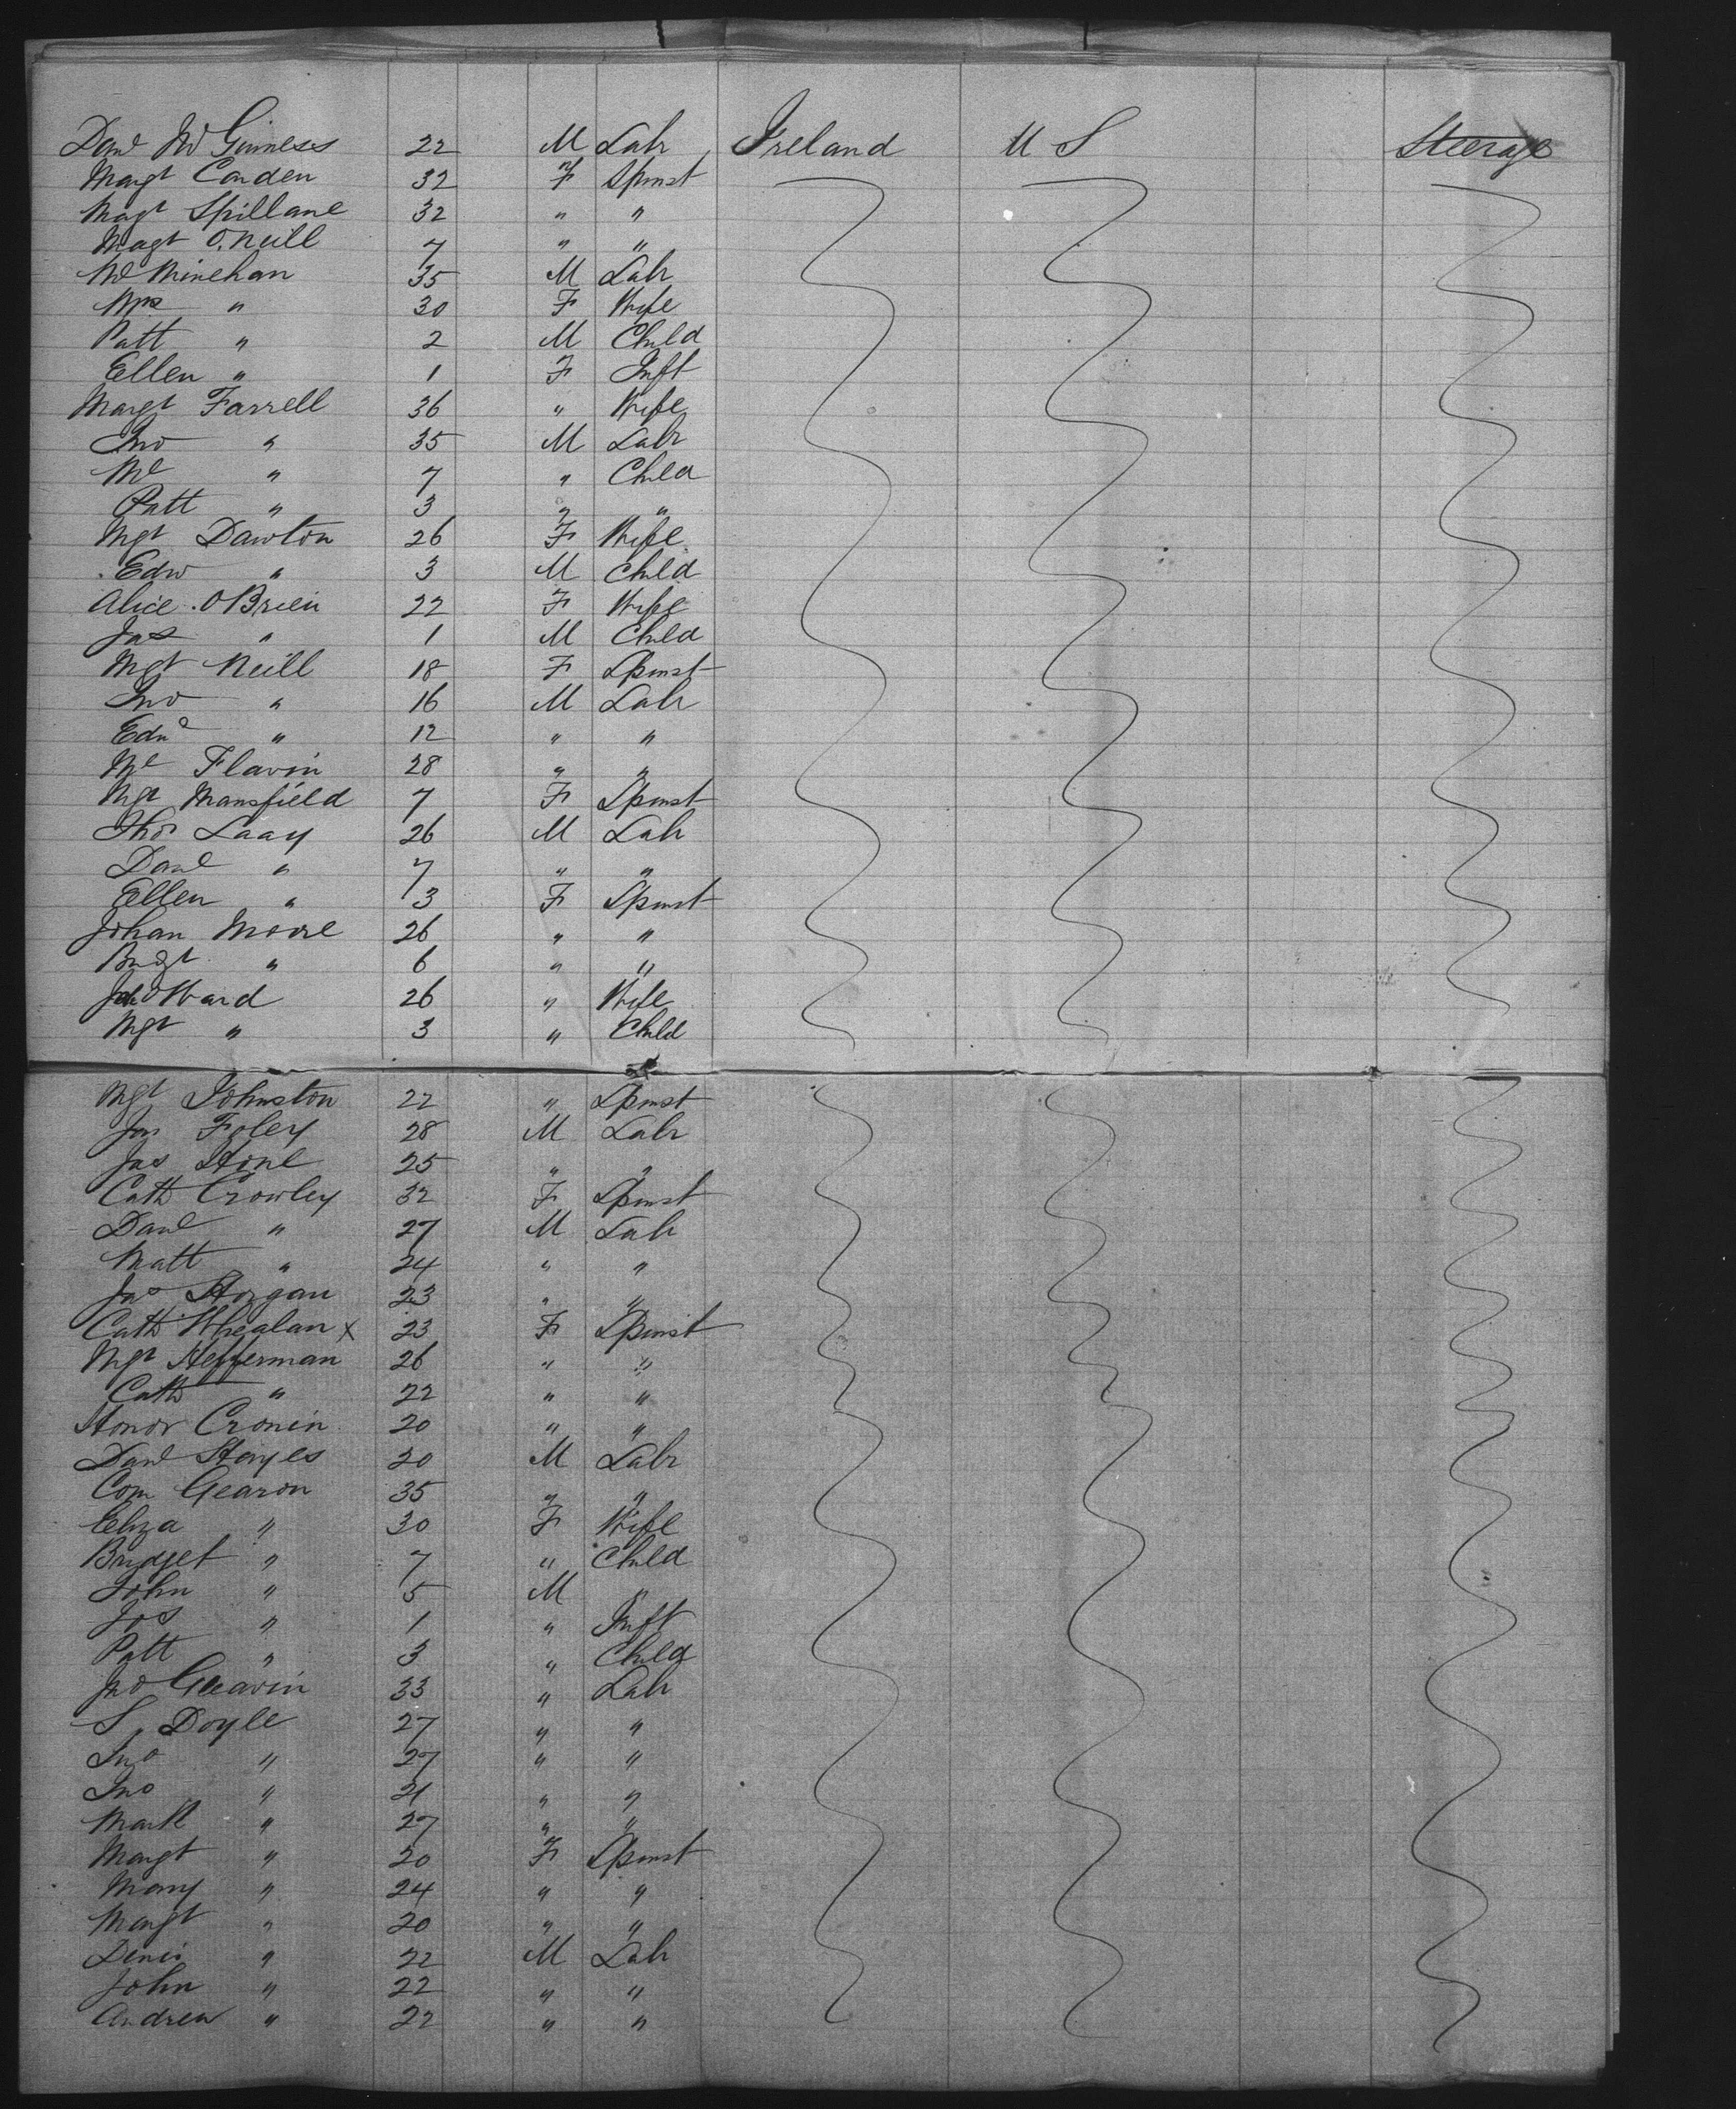 Danl McGinness 22 M Labr Ireland U S Steerage
Margt Conden 32 F Spinst
Magt Spillane 32 " "
Magt O.Neill 7 " "
Ml Minehan 35 M Labr
Mrs " 30 F Wife
Patt " 2 M Child
Ellen " 1 F Inft
Margt Farrell 36 " Wife
Jno " 35 M Labr
Ml " 7 " Child
Patt " 3 " "
Mgt Dawton 26 F Wife
Edw " 3 M Child
Alice OBrien 22 F Wife
Jas " 1 M Child
Mgt Neill 18 F Spinst
Jno " 16 M Labr
Edwd " 12 " "
Ml Flavin 28 " "
Mgt Mansfield 7 F Spinst
Thos Laay 26 M Labr
Danl " 7 " "
Ellen " 3 F Spinst
Johan Moore 26 " "
Bridgt " 6 " "
Ward 26 " Wife
Mgt " 3 " Child
Mgt Johnston 22 " Spinst
Jas Foley 28 M Labr
Jas Hore 25 " "
Cath Crowley 32 F Spinst
Danl " 27 M Labr
Matt " 24 " "
Jas Horgan 23 " "
Cath Whealan x 23 F Spinst
Mgt Hefferman 26 " "
Cath " 22 " "
Honor Cronin 20 " "
Danl Hayes 20 M Labr
Com Gearon 35 " "
Eliza " 30 F Wife
Bridget " 7 " Child
John " 5 M "
Jos " 1 " Inft
Patt " 3 " Child
Jno Gearin 33 " Labr
S. Doyle 27 " "
Jno " 27 " "
Jno " 21 " "
Mark " 27 " "
Margt " 20 F Spinst
Mary " 24 " "
Margt " 20 " "
Denis " 22 M Labr
John " 22 " "
Andrew " 22 " "